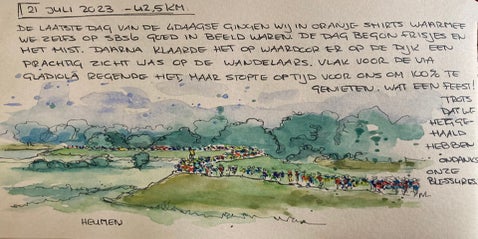 21 JULI 2023 - 42,5 KM.
DE LAATSTE DAG VAN DE 4DAAGSE GINGEN WIJ IN ORANJE SHIRTS WAARMEE
WE ZELFS OP SBS6 GOED IN BEELD WAREN. DE DAG BEGON FRISJES EN
MET MIST. DAARNA KLAARDE HET OP WAARDOOR ER OP DE DIJK EEN
PRACHTIG ZICHT WAS OP DE WANDELAARS. VLAK VOOR DE VIA
GLADIOLA REGENDE HET, MAAR STOPTE OP TIJD VOOR ONS OM 100% TE
GENIETEN. WAT EEN FEEST!
TROTS
DAT WE
HET GE-
HAALD
HEBBEN
ONDANKS
ONZE
BLESSURES.
HEUMEN